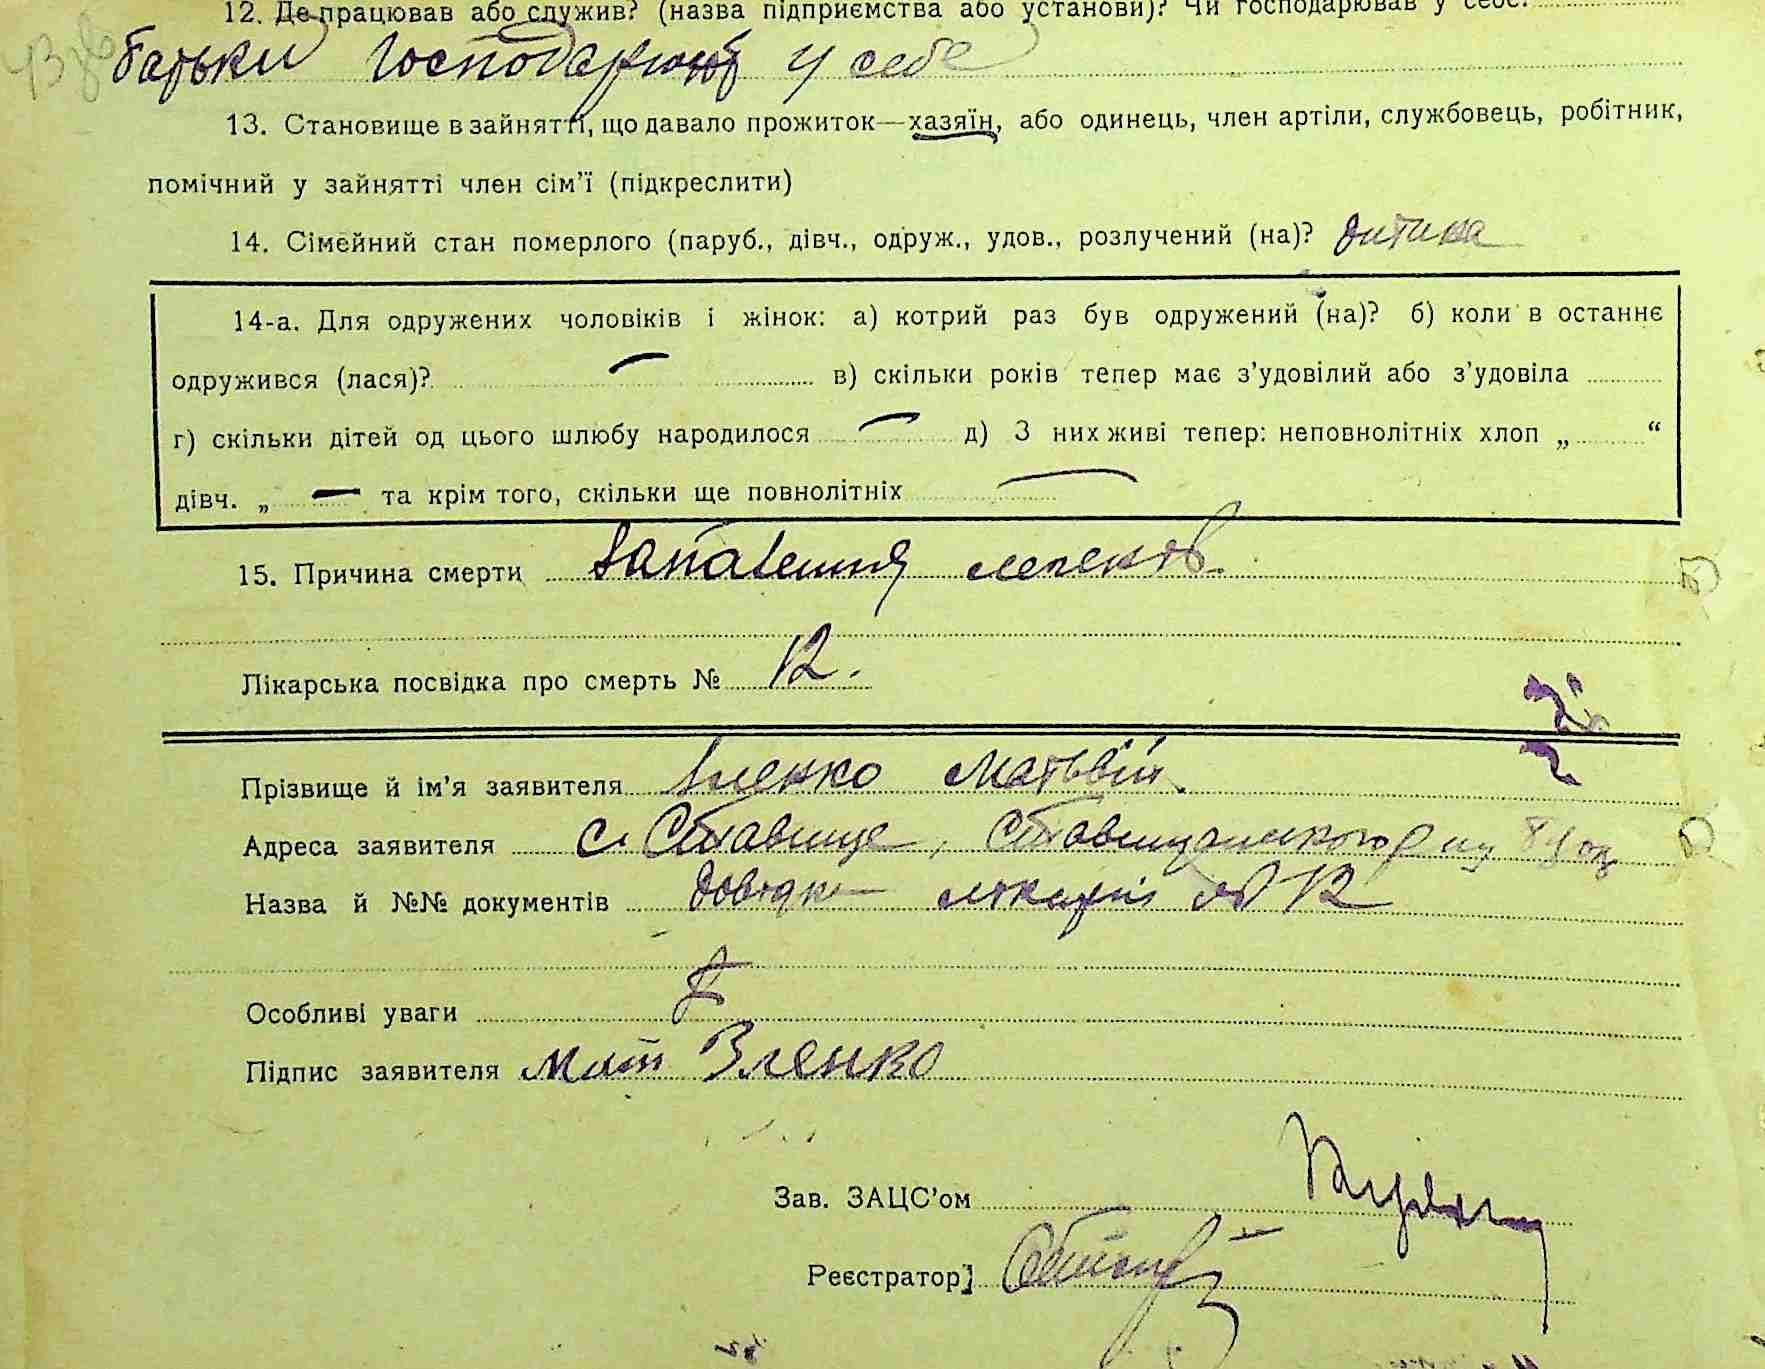 12. Де працював або служив? (назва підприємства або установи)? Чи господарював у себе?
батьки господарюют у себе
13. Становище в зайнятті, що давало прожиток—хазяїн, або одинець, член артіли, службовець, робітник,
помічний у зайнятті член сім’ї (підкреслити)
14. Сімейний стан померлого (паруб., дівч., одруж., удов., розлучений (на)? дитина
14-а. Для одружених чоловіків і жінок: а) котрий раз був одружений (на)? б) коли в останнє
одружився (лася)? — в) скільки років тепер має з’удовілий або з’удовіла
г) скільки дітей од цього шлюбу народилося — д) З них живі тепер: неповнолітніх хлоп „ “
дівч. „ — та крім того, скільки ще повнолітніх —
15. Причина смерти запалення легенів
Лікарська посвідка про смерть № 12.
Прізвище й ім’я заявителя Зленко Матвій
Адреса заявителя с. Ставище, Ставищанського р-ну
Назва й №№ документів довідка лікаря № 12
Особливі уваги
Підпис заявителя Мат Зленко
Зав. ЗАЦС’ом
Реєстратор